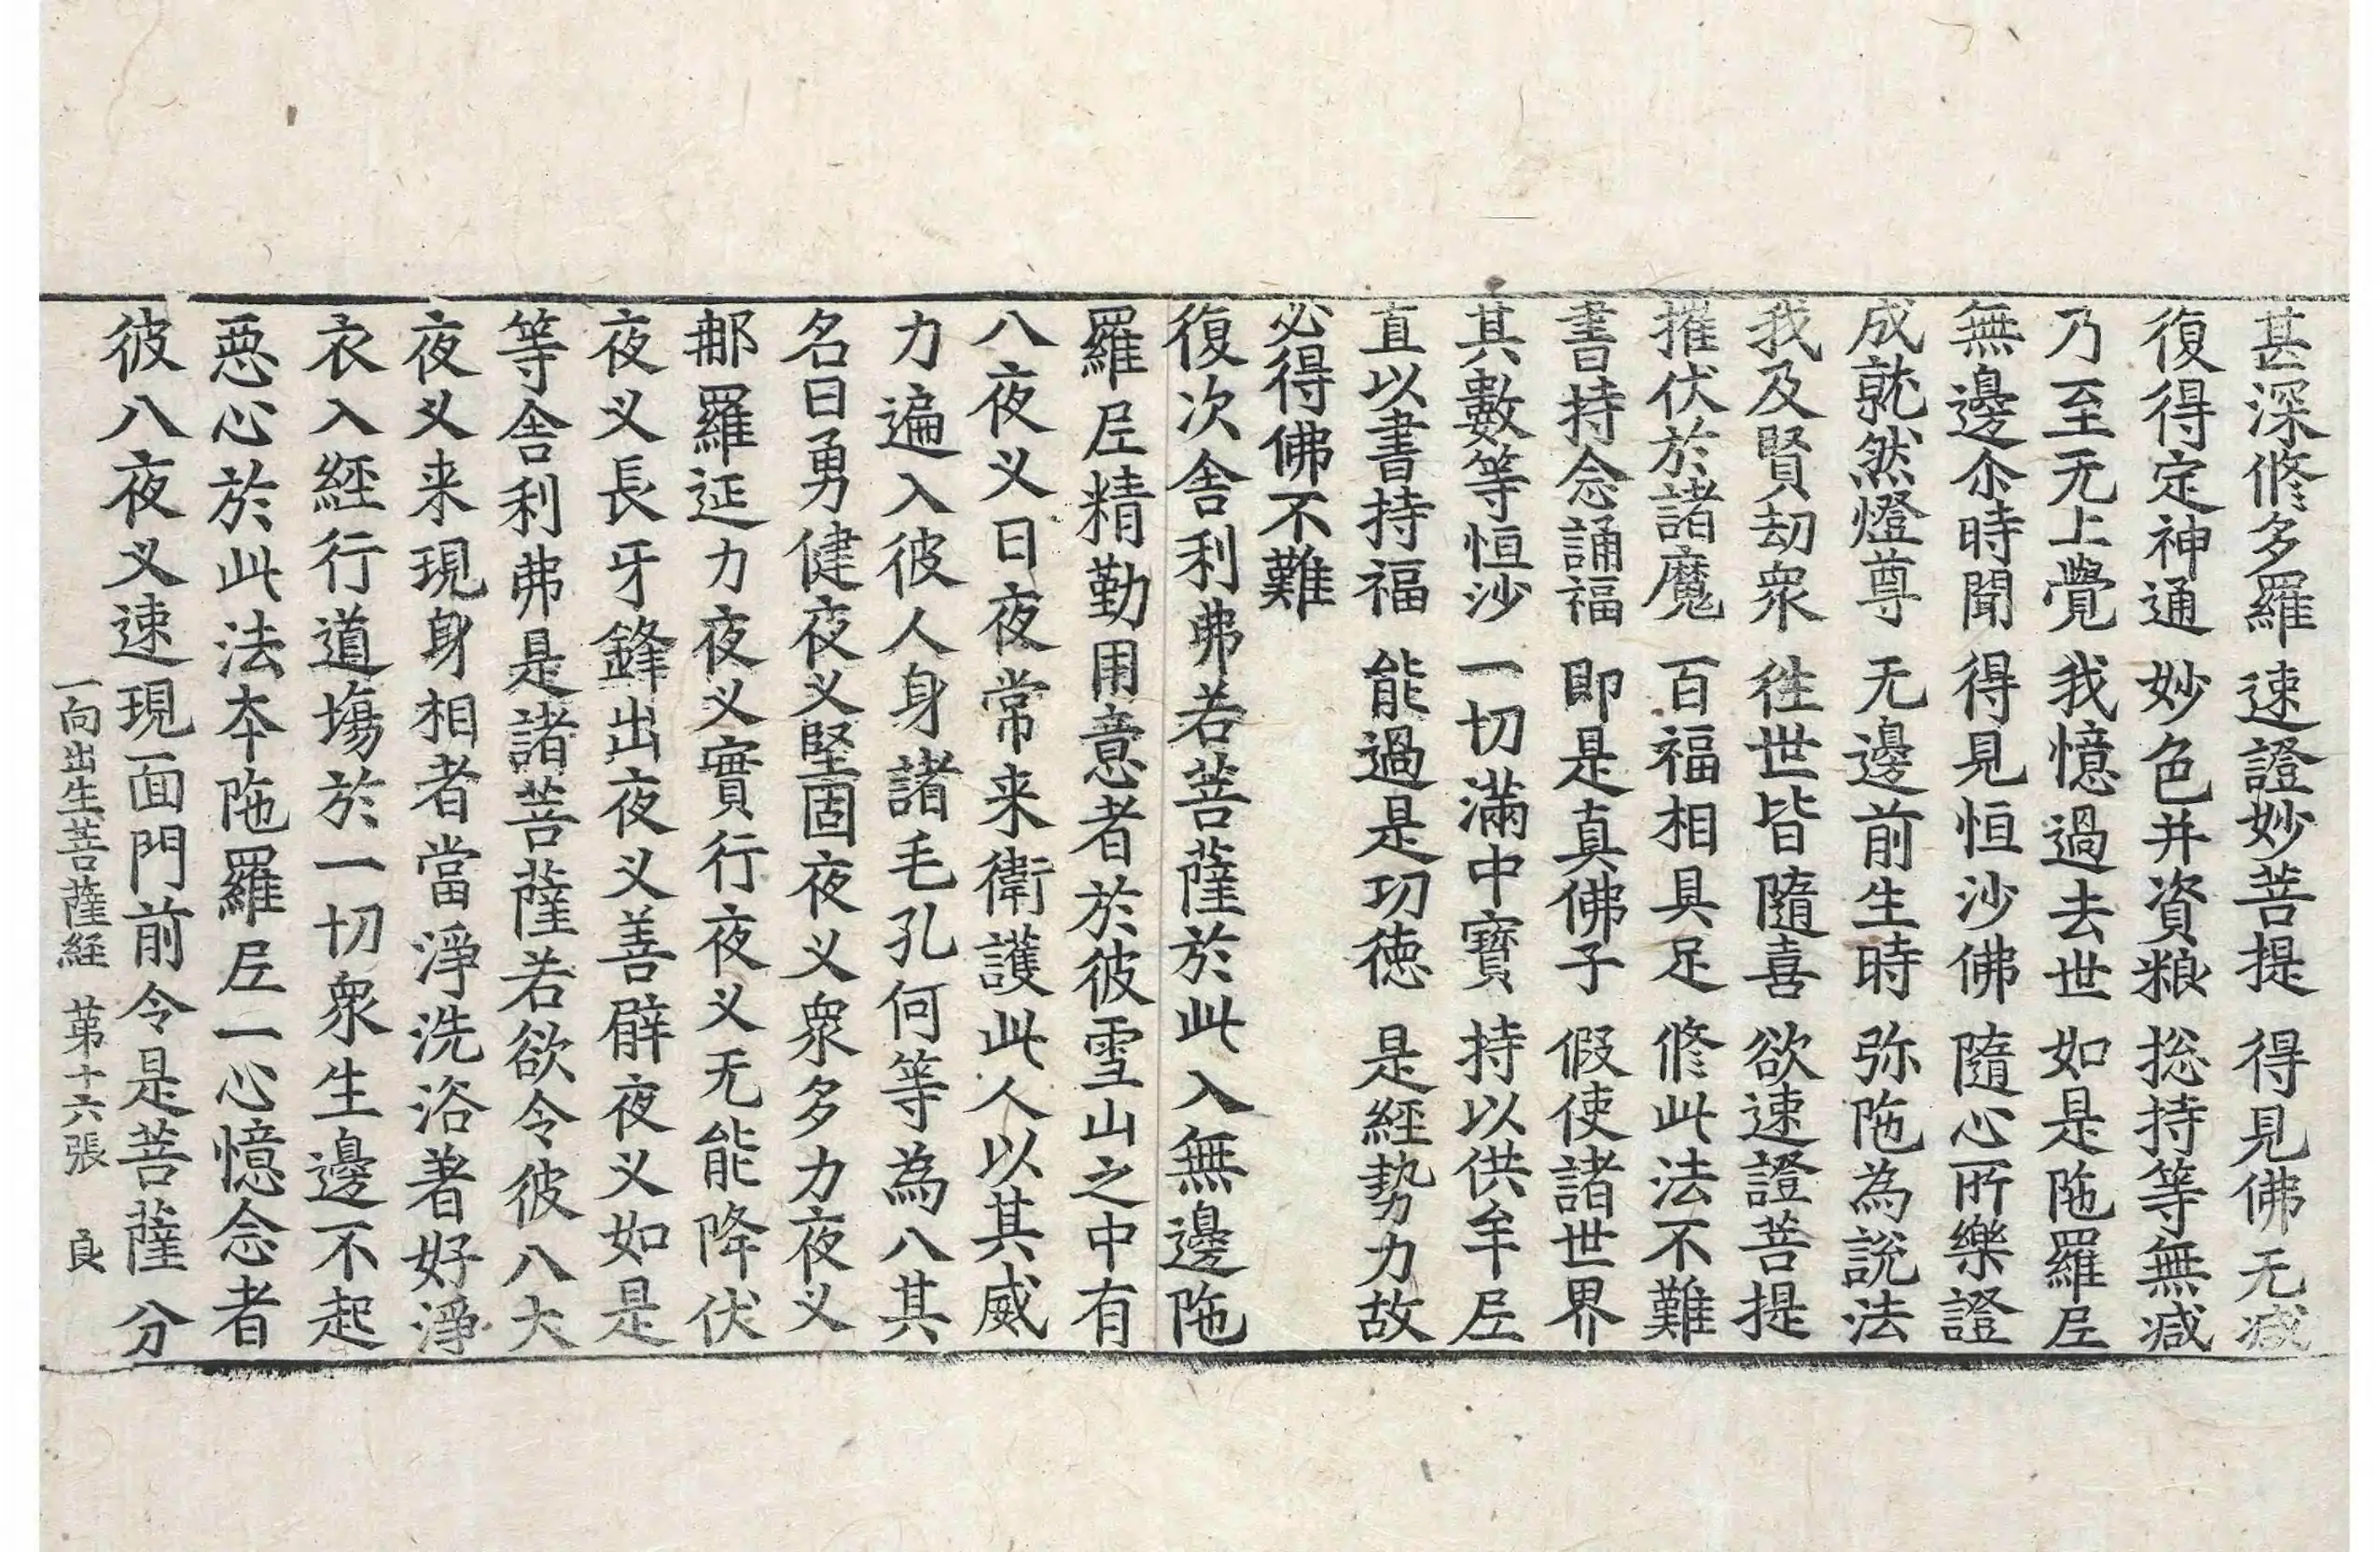 甚深修多羅 速證妙菩提 得見佛无減
復得定神通 妙色并資粮 捴持等無減
乃至无上覺 我憶過去世 如是陁羅𡰱
無邊尒時聞 得見恒沙佛 隨心所樂證
成就然燈尊 无邊前生時 弥陁為說法
我及賢劫衆 徃世皆隨喜 欲速證菩提
摧伏於諸魔 百福相具足 修此法不難
書持念誦福 即是真佛子 假使諸世界
其數等恒沙 一切滿中寶 持以供牟𡰱
直以書持福 能過是功徳 是經勢力故
必得佛不難
復次舍利弗若菩薩於此入無邊陁
羅𡰱精勤用意者於彼雪山之中有
八夜义日夜常来衛護此人以其威
力遍入彼人身諸毛孔何等為八其
名曰勇健夜义堅固夜义衆多力夜义
𨙻羅延力夜义實行夜义无能降伏
夜义長牙鋒出夜义善臂夜义如是
等舍利弗是諸菩薩若欲令彼八大
夜义来現身相者當淨洗浴著好淨
衣入經行道塲於一切衆生邊不起
惡心於此法夲陁羅𡰱一心憶念者
彼八夜义速現面門前令是菩薩分
一向出生菩薩経 苐十六張 良